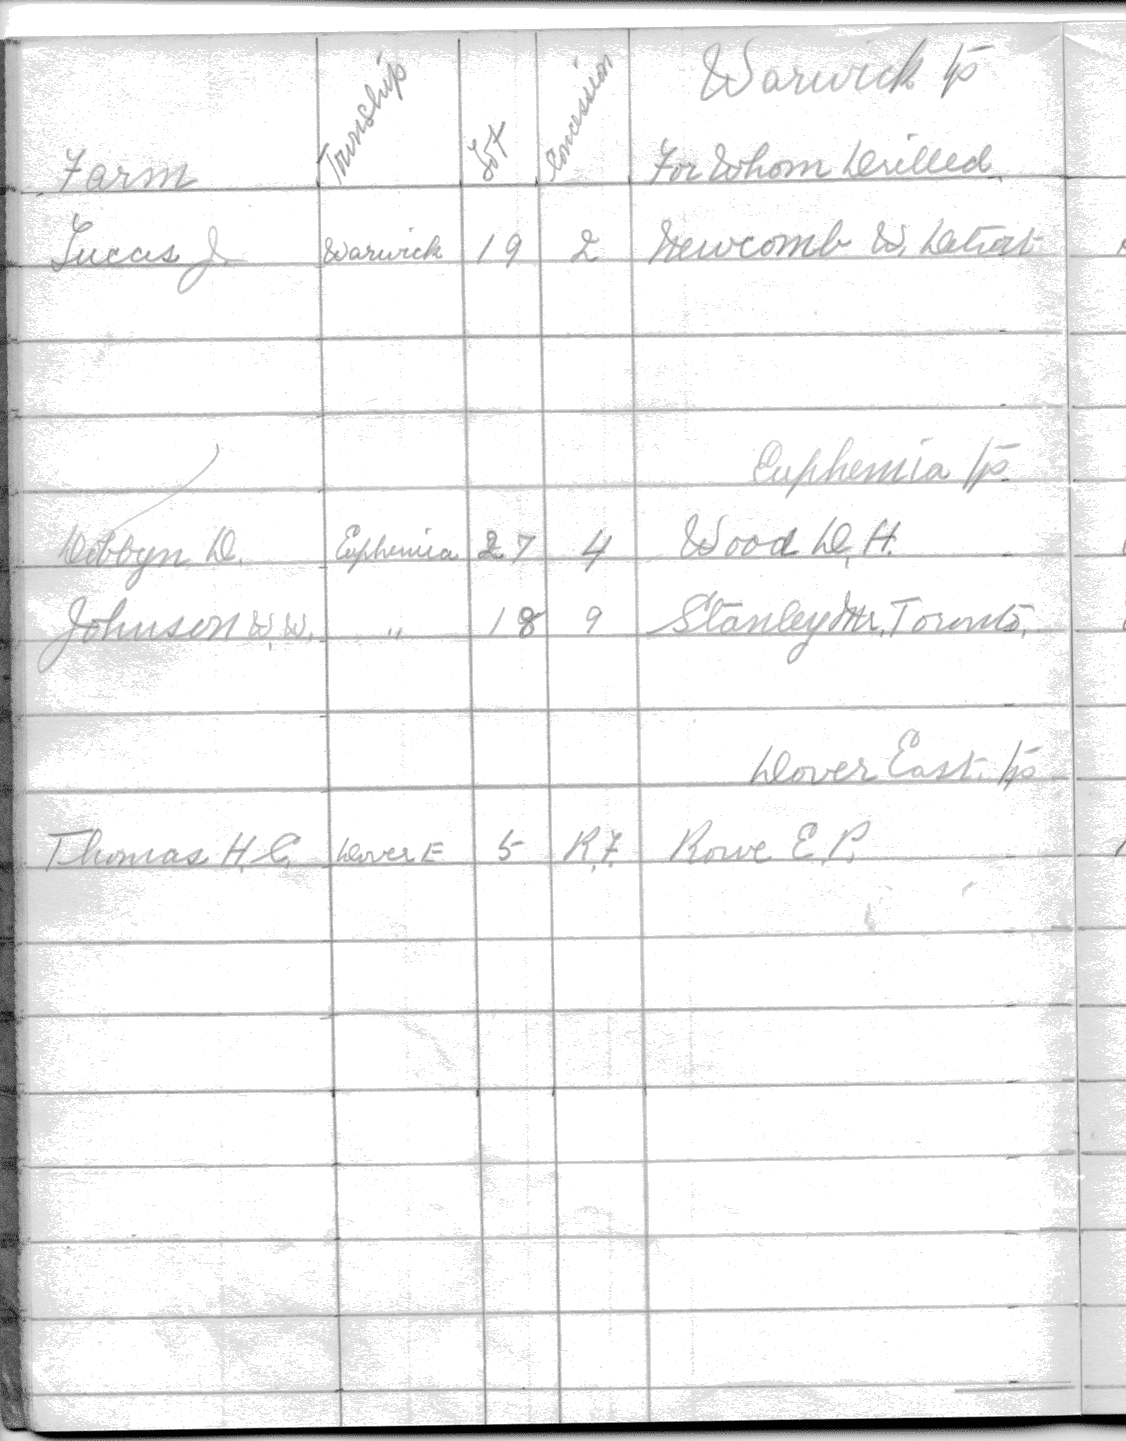 Warwick Tp
Farm Township Lot Concession For Whom Drilled
Lucas J. Warwick 19 2 Newcomb W. Detroit
Euphemia Tp
Dobbyn D. Euphemia 27 4 Wood D. H.
Johnson W. W. " 18 9 Stanley Mr. Toronto.
Dover East. Tp
Thomas H. C. Dover E 5 R.F. Rowe E. P.